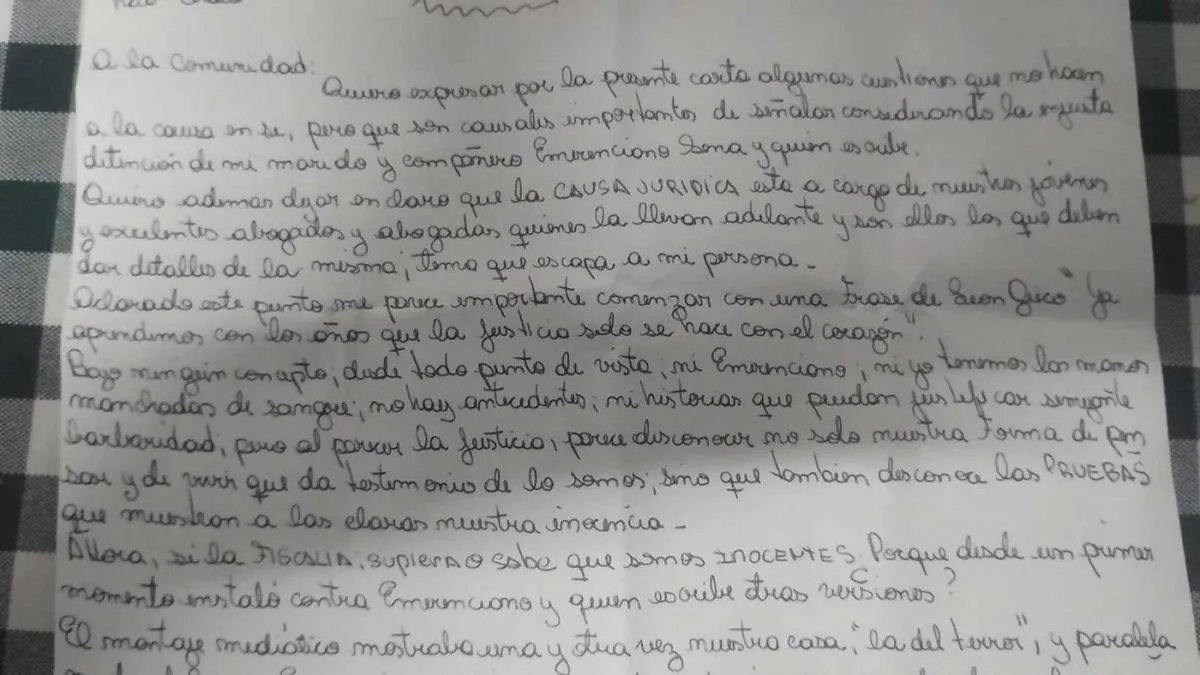 A la Comunidad:
Quiero expresar por la presente carta algunas cuestiones que no hacen
a la causa en si, pero que son causales importantes de señalar considerando la injusta
detención de mi marido y compañero Emerenciano Sena y quien escribe.
Quiero ademas dejar en claro que la CAUSA JURIDICA esta a cargo de nuestros jóvenes
y excelentes abogados y abogadas quienes la llevan adelante y son ellos los que deben
dar detalles de la misma, tema que escapa a mi persona -
Aclarado este punto me parece importante comenzar con una frase de Leon Gieco "ya
aprendimos con los años que la justicia solo se hace con el corazón".
Bajo ningún concepto, desde todo punto de vista, ni Emerenciano, ni yo tenemos las manos
manchadas de sangre, no hay antecedentes, ni historias que puedan justificar semejante
barbaridad, pero al parecer la justicia, parece desconocer no solo nuestra forma de pen
sar y de vivir que da testimonio de lo somos, sino que tambien desconoce las PRUEBAS
que muestran a las claras nuestra inocencia -
Ahora, si la FISCALIA, SUPIERA O sabe que somos INOCENTES. Porque desde un primer
momento instaló contra Emerenciano y quien escribe otras versiones?
El montaje mediático mostraba una y otra vez nuestra casa, "la del terror", y paralela